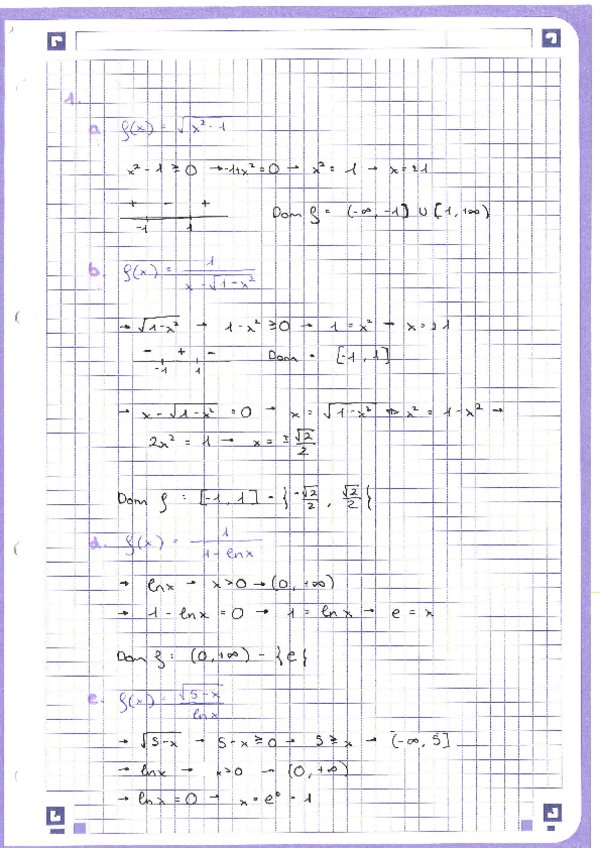 1.
a. f(x) = √(x²-1)
x² - 1 ≥ 0 → -1+x² = 0 → x² = 1 → x = ±1
+ - +
-1 1
Dom f = (-∞, -1] ∪ [1, +∞)
b. f(x) = 1/(x - √(1-x²))
→ √(1-x²) → 1-x² ≥ 0 → 1 = x² → x = ±1
- + -
-1 1
Dom = [-1, 1]
→ x - √(1-x²) = 0 → x = √(1-x²) → x² = 1-x² →
2x² = 1 → x = ± √2/2
Dom f = [-1, 1] - {-√2/2, √2/2}
d. f(x) = 1/(1-ln x)
→ ln x → x>0 → (0, +∞)
→ 1 - ln x = 0 → 1 = ln x → e = x
Dom f: (0, +∞) - {e}
e. f(x) = √(5-x)/ln x
→ √(5-x) → 5-x ≥ 0 → 5 ≥ x → (-∞, 5]
→ ln x → x>0 → (0, +∞)
→ ln x = 0 → x = e⁰ = 1